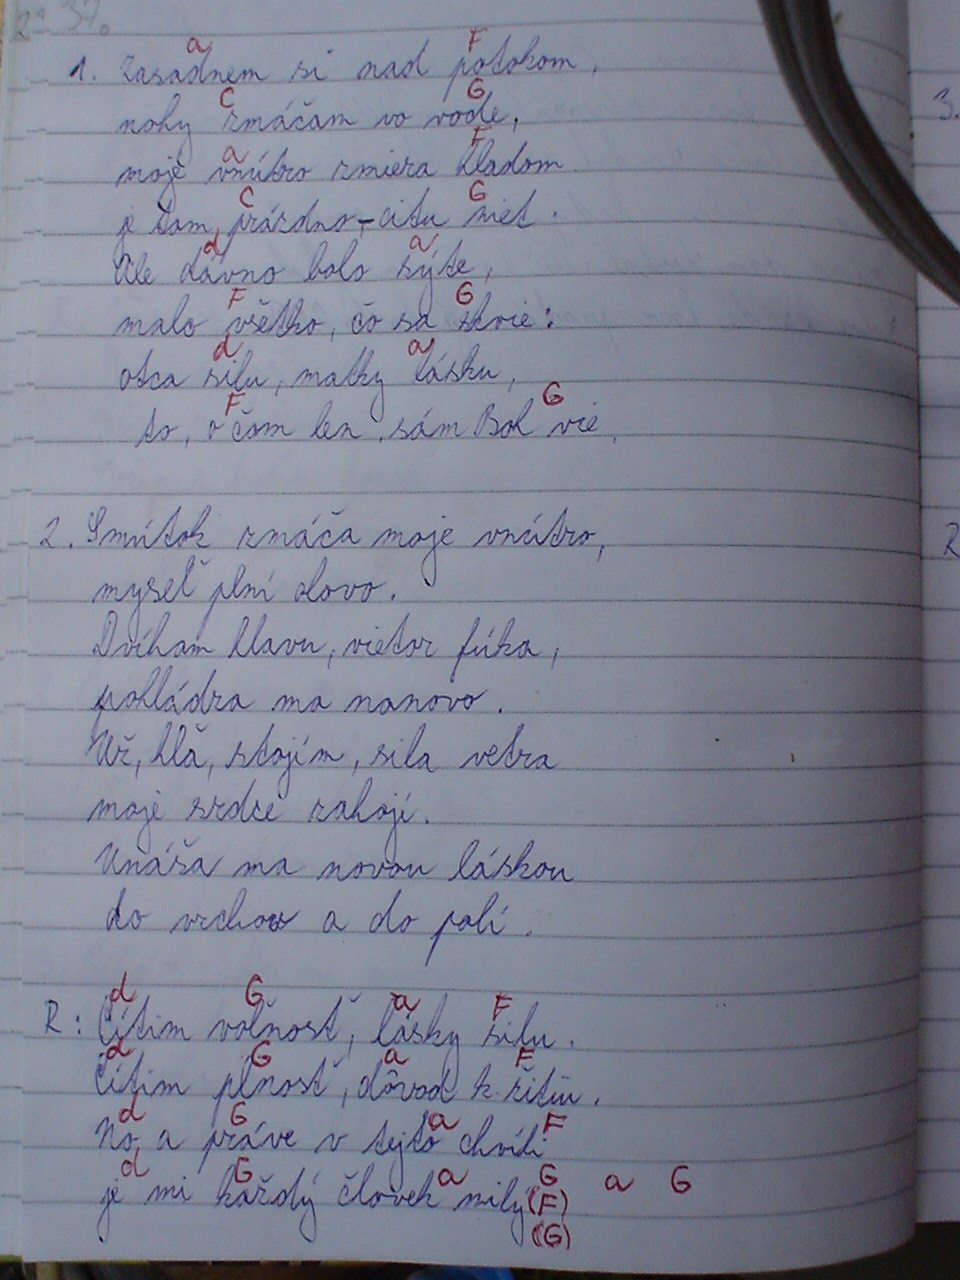 37.
a F
1. Zasadnem si nad potokom,
C G
nohy zmáčam vo vode,
a F
moje vnútro zmiera hladom
C G
je tam prázdno - citu niet.
d a
Ale dávno bolo sýte,
F G
malo všetko, čo sa skvie:
d a
otca silu, matky lásku,
F G
to, o čom len sám Boh vie.
2. Smútok zmáča moje vnútro,
myseľ plní olovo.
Dvíham hlavu, vietor fúka,
pohládza ma nanovo.
Už, hľa, stojím, sila vetra
moje srdce zahojí.
Unáša ma novou láskou
do vrchov a do polí.
d G a F
R: Cítim voľnosť, lásky silu.
d G a F
Cítim plnosť, dôvod k žitiu.
d G a F
No a práve v tejto chvíli
d G a G a G
je mi každý človek milý (F)
(G)
3.
R